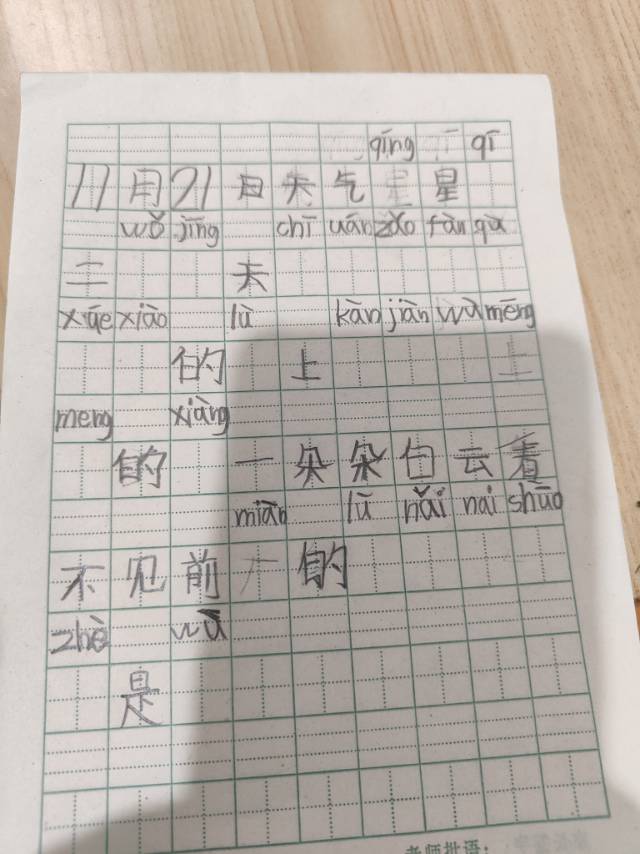 qīng qī
11月21日天气星
wǒ jīng chī uán zǎo fàn qù
二天
xúe xiào lù kàn jiàn wù mēng
的上上
meng xiàng
的一朵朵白云看
miàn lù nǎi nai shūo
不见前的
zhè wù
是
老师批语: